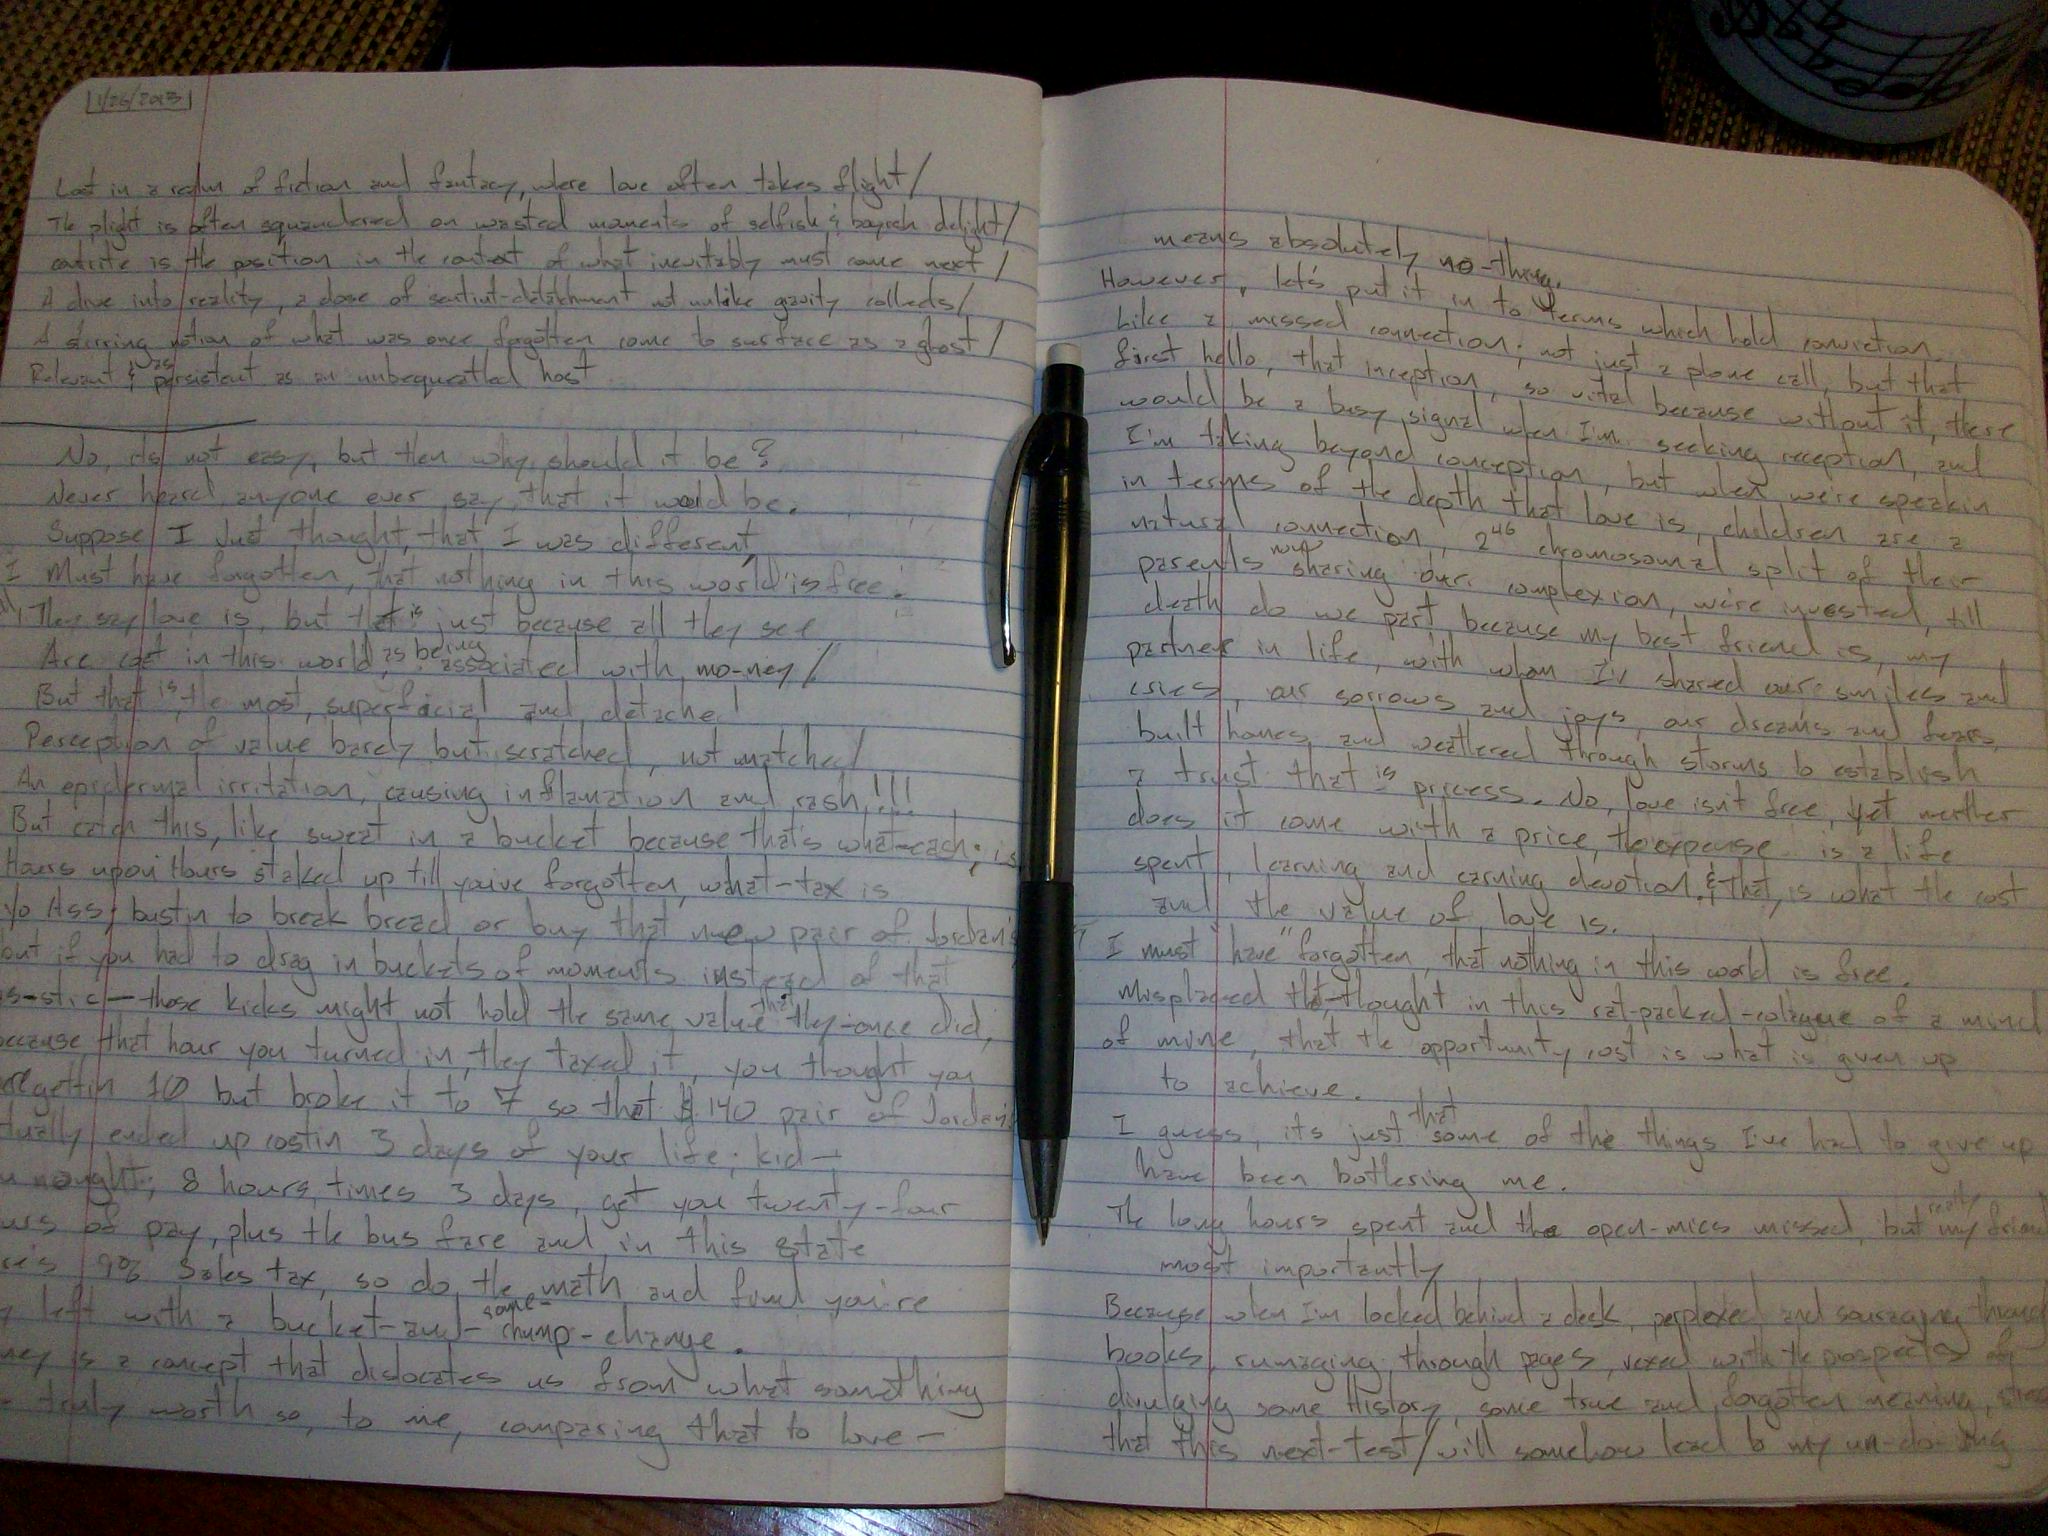 1/26/2013
Lost in a realm of fiction and fantasy, where love often takes flight/
The plight is often squandered on wasted moments of selfish & boyish delight/
contrite is the position in the context of what inevitably must come next/
A dive into reality, a dose of detatchment not unlike gravity collects/
A stirring notion of what was once forgotten come to surface as a ghost/
Relevant & as persistent as an unbequeathed host
No, its not easy, but then why should it be?
Never heard anyone ever say, that it would be.
Suppose I Just thought, that I was different,
I Must have forgotten, that nothing in this world is free.
They say love is, but that is just because all they see
Are cost in this world, as being associated with mo-ney/
But that is, the most, superficial and detached
Perception of value barely but scratched, not matched/
An epidermal irritation, causing inflamation and rash!!!
But catch this, like sweat in a bucket because that's what-cash; is
Hours upon Hours staked up till you've forgotten, what-tax is
Yo Ass; bustin to break bread or buy that new pair of Jordan's
but if you had to drag in buckets of moments instead of that
s-stic- those kicks might not hold the same value that they-once did,
because that hour you turned in, they taxed it, you thought you
gettin 10 but broke it to 7 so that $140 pair of Jordan's
tually ended up costin 3 days of your life; kid-
8 hours, times 3 days, get you twenty-four
urs of pay, plus the bus fare and in this state
re's 9% Sales tax, so do the math and find you're
left with a bucket-and-some-chump-change.
ney is a concept that dislocates us from what something
truly worth so, to me, comparing that to love-
means absolutely no-thing.
However, let's put it in to terms which hold conviction.
Like a missed connection; not just a phone call, but that
first hello, that inception, so vital because without it, there
would be a busy signal when I'm seeking reception, and
I'm taking beyond conception, but when we're speakin
in terms of the depth that love is, children are a
natural connection, 2^46 chromosomal split of their
parents now sharing our complexion, we're invested, till
death do we part because my best friend is, my
partner in life, with whom I'v shared our smiles and
cries, our sorrows and joys, our dreams and fears,
built homes and weathered through storms to establish
a trust that is priceless. No, love isn't free, yet neither
does it come with a price, the expense is a life
spent, learning and earning devotion. & that, is what the cost
and the value of love is.
I must "have" forgotten, that nothing in this world is free.
Misplaced that-thought in this rat-packed-collage of a mind
of mine, that the opportunity cost is what is given up
to achieve.
I guess, its just that some of the things I've had to give up
have been bothering me.
The long hours spent and the open-mics missed, but really my friend
most importantly
Because when I'm locked behind a desk, perplexed and through
books, rumaging through pages, vexed with the prospects of
divulging some History, some true and forgotten meaning,
that this next-test/will somehow lead to my un-do-ing